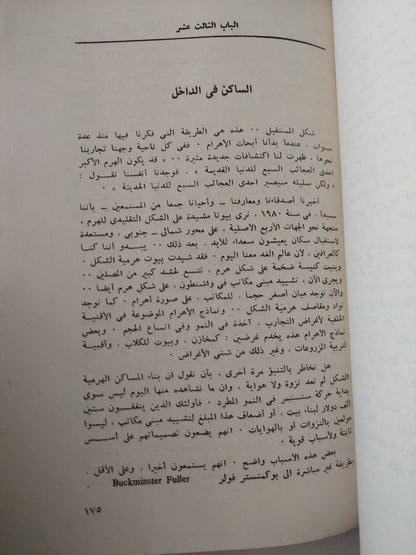 الباب الثالث عشر
الساكن فى الداخل
شكل المستقبل ٠٠ هذه هى الطريقة التى فكرنا فيها منذ عدة
سنوات ، عندما بدأنا أبحاث الأهرام ٠ ففى كل ناحية وجهنا تجاربنا
نحوها ، ظهرت لنا اكتشافات جديدة مثيرة ٠٠ « قد يكون الهرم الأكبر
احدى العجائب السبع للدنيا القديمة » ٠ فوجدنا أنفسنا نقول :
« ولكن سليله سيصير احدى العجائب السبع للدنيا الحديثة » ٠
أخبرنا أصدقاءنا ومعارفنا ، وأحيانا جمعا من المستمعين ، بأننا
سنبدأ ، فى سنة ١٩٨٠ ، نرى بيوتا مشيدة على الشكل التقليدى للهرم ،
متجهة نحو الجهات الأربع الأصلية ، على محور شمالى – جنوبى ، ومستعدة
لاستقبال سكان يعيشون سعداء للأبد ، بعد ذلك ٠٠ يبدو أننا كنا
كالعرافين ، لان عالم الغد معنا اليوم ٠ فقد شيدت بيوت هرمية الشكل ٠
وبنيت كنيسة ضخمة على شكل هرم ، تتسع لحشد كبير من المصلين ٠٠
ويجرى الآن ، تشييد مبنى مكاتب فى واشنطون ، على شكل هرم أيضا ٠٠
والآن توجد مبان أصغر حجما ، للمكاتب ، على صورة أهرام ٠ كما توجد
نواد ومقاصف هرمية الشكل ٠٠ ونماذج الأهرام الموضوعة فى الأفنية
الخلفية لأغراض التجارب ، آخذة فى النمو وفى اتساع الحجم ٠ وبعض
نماذج الأهرام هذه يخدم غرضين : كمخازن ، وبيوت للكلاب ، وأقبية
لتربية المزروعات ، وغير ذلك من شتى الأغراض ٠
هل نخاطر بالتنبؤ مرة أخرى ، بأن نقول ان بناء المساكن الهرمية
الشكل لم تعد نزوة ولا هواية ، وان ما نشاهده منها اليوم ليس سوى
بداية حركة ستستمر فى النمو المطرد ٠ فأولئك الذين ينفقون ستين
ألف دولار لبناء بيت ، أو أضعاف هذا المبلغ لتشييد مبنى مكاتب ، ليسوا
مولعين بالنزوات أو بالهوايات ٠ انهم يضعون تصميماتهم على أسس
ثابتة ولأسباب قوية ٠
بعض هذه الأسباب واضح ٠ انهم يستمعون أخيرا ، وعلى الأقل ،
بطريقة غير مباشرة الى بوكمنستر فولر Buckminster Fuller
١٧٥